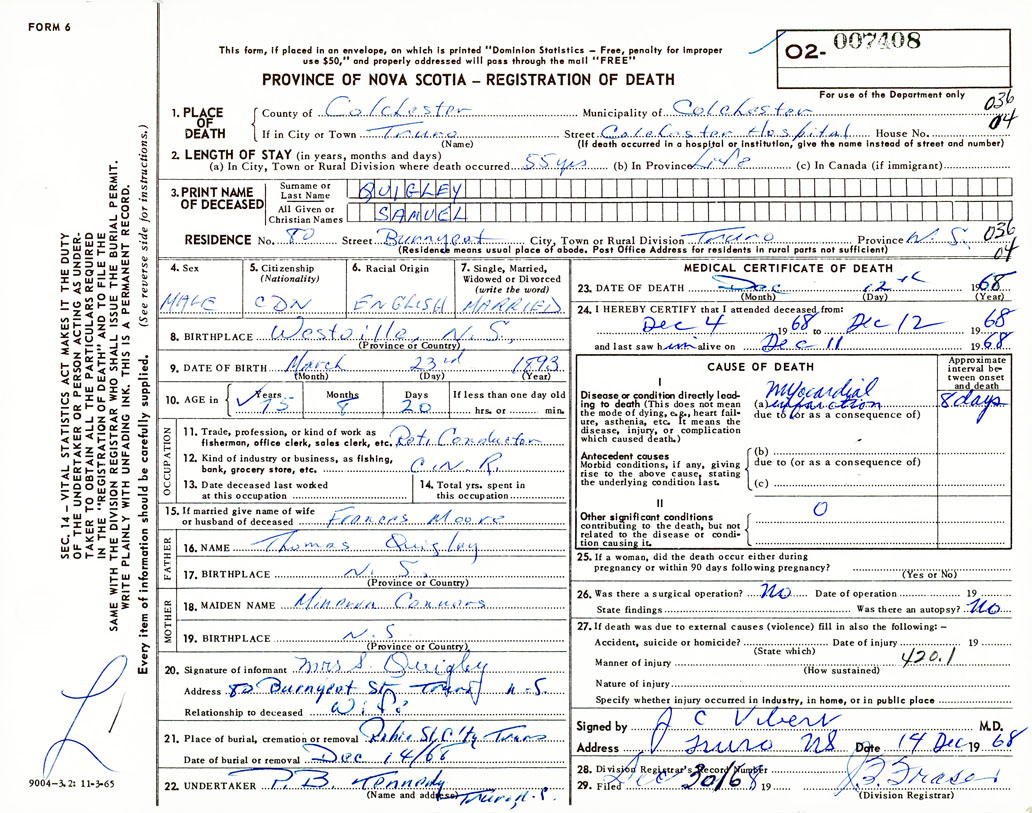 FORM 6
This form, if placed in an envelope, on which is printed "Dominion Statistics – Free, penalty for improper
use $50," and properly addressed will pass through the mail "FREE"
PROVINCE OF NOVA SCOTIA – REGISTRATION OF DEATH
O2- 007408
For use of the Department only
036
04
1. PLACE OF DEATH
County of Colchester Municipality of Colchester
If in City or Town Truro Street Colchester Hospital House No.
(Name) (If death occurred in a hospital or institution, give the name instead of street and number)
2. LENGTH OF STAY (in years, months and days)
(a) In City, Town or Rural Division where death occurred 55 yrs (b) In Province Life (c) In Canada (if immigrant)
3. PRINT NAME OF DECEASED
Surname or Last Name QUIGLEY
All Given or Christian Names SAMUEL
RESIDENCE No. 80 Street Burnyeat City, Town or Rural Division Truro Province N.S.
(Residence means usual place of abode. Post Office Address for residents in rural parts not sufficient)
036
04
4. Sex MALE
5. Citizenship (Nationality) CDN
6. Racial Origin ENGLISH
7. Single, Married, Widowed or Divorced (write the word) MARRIED
8. BIRTHPLACE Westville, N.S.,
(Province or Country)
9. DATE OF BIRTH March 23rd 1893
(Month) (Day) (Year)
10. AGE in Years Months Days If less than one day old
75 8 20 hrs. or min.
OCCUPATION
11. Trade, profession, or kind of work as
fisherman, office clerk, sales clerk, etc. Ret. Conductor
12. Kind of industry or business, as fishing,
bank, grocery store, etc. C.N.R.
13. Date deceased last worked
at this occupation
14. Total yrs. spent in
this occupation
15. If married give name of wife
or husband of deceased Frances Moore
FATHER
16. NAME Thomas Quigley
17. BIRTHPLACE N.S.
(Province or Country)
MOTHER
18. MAIDEN NAME Minerva Connors
19. BIRTHPLACE N.S
(Province or Country)
20. Signature of informant Mrs S. Quigley
Address 80 Burnyeat St, Truro N-S.
Relationship to deceased Wife
21. Place of burial, cremation or removal Robie St. C'ty Truro
Date of burial or removal Dec 14/68
22. UNDERTAKER P.B. Kennedy
(Name and address) Truro N-S.
MEDICAL CERTIFICATE OF DEATH
23. DATE OF DEATH Dec 12th 1968
(Month) (Day) (Year)
24. I HEREBY CERTIFY that I attended deceased from:
Dec 4 1968 to Dec 12 1968
and last saw him alive on Dec 11 1968
CAUSE OF DEATH
Approximate interval between onset and death
I
Disease or condition directly leading to death (This does not mean the mode of dying, e.g., heart failure, asthenia, etc. It means the disease, injury, or complication which caused death.)
Myocardial
(a) infarction 8 days
due to (or as a consequence of)
Antecedent causes
Morbid conditions, if any, giving rise to the above cause, stating the underlying condition last.
(b)
due to (or as a consequence of)
(c)
II
Other significant conditions contributing to the death, but not related to the disease or condition causing it.
0
25. If a woman, did the death occur either during
pregnancy or within 90 days following pregnancy?
(Yes or No)
26. Was there a surgical operation? No Date of operation 19
State findings Was there an autopsy? No
27. If death was due to external causes (violence) fill in also the following: –
Accident, suicide or homicide? Date of injury 19
(State which)
Manner of injury 420.1
(How sustained)
Nature of injury
Specify whether injury occurred in industry, in home, or in public place
Signed by J C Vibert M.D.
Address Truro NS Date 14 Dec 1968
28. Division Registrar's Record Number
29. Filed Dec 30/68 19 Fraser
(Division Registrar)
SEC. 14 – VITAL STATISTICS ACT MAKES IT THE DUTY
OF THE UNDERTAKER OR PERSON ACTING AS UNDER-
TAKER TO OBTAIN ALL THE PARTICULARS REQUIRED
IN THE "REGISTRATION OF DEATH" AND TO FILE THE
SAME WITH THE DIVISION REGISTRAR WHO SHALL ISSUE THE BURIAL PERMIT.
WRITE PLAINLY WITH UNFADING INK. THIS IS A PERMANENT RECORD.
Every item of information should be carefully supplied. (See reverse side for instructions.)
9004-3.2: 11-3-65